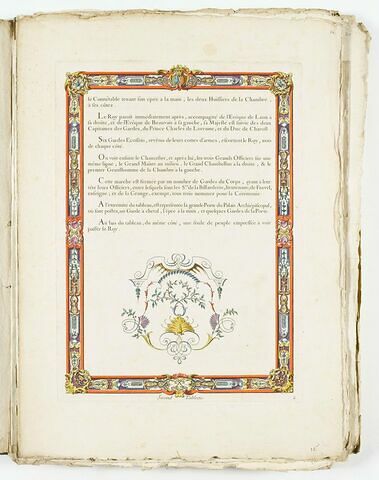 le Connétable tenant son epée à la main, les deux Huissiers de la Chambre,
à ses côtez.
Le Roy paroît immediatement après, accompagné de l'Evêque de Laon à
sa droite, et de l'Evêque de Beauvais à sa gauche, sa Majesté est suivie des deux
Capitaines des Gardes, du Prince Charles de Lorraine, et du Duc de Charost.
Six Gardes Ecossois, revêtus de leurs cottes d'armes, escortent le Roy, trois
de chaque côté.
On voit ensuite le Chancelier, et après luy, les trois Grands Officiers sur une
même ligne, le Grand Maître au milieu, le Grand Chambellan à sa droite, & le
premier Gentilhomme de la Chambre à la gauche.
Cette marche est fermée par un nombre de Gardes du Corps, ayant à leur
tête leurs Officiers, entre lesquels sont les Srs de la Billarderie,
enseigne, et de la Grange, exempt, tous trois nommez pour la Ceremonie.
A l'extremité du tableau, est representée la grande Porte du Palais Archiépiscopal,
ou sont postez, un Garde à cheval, l'épée à la main, et quelques Gardes de la Porte.
Au bas du tableau, du même côté, une foule de peuple empressée à voir
passer le Roy.
Second Tableau